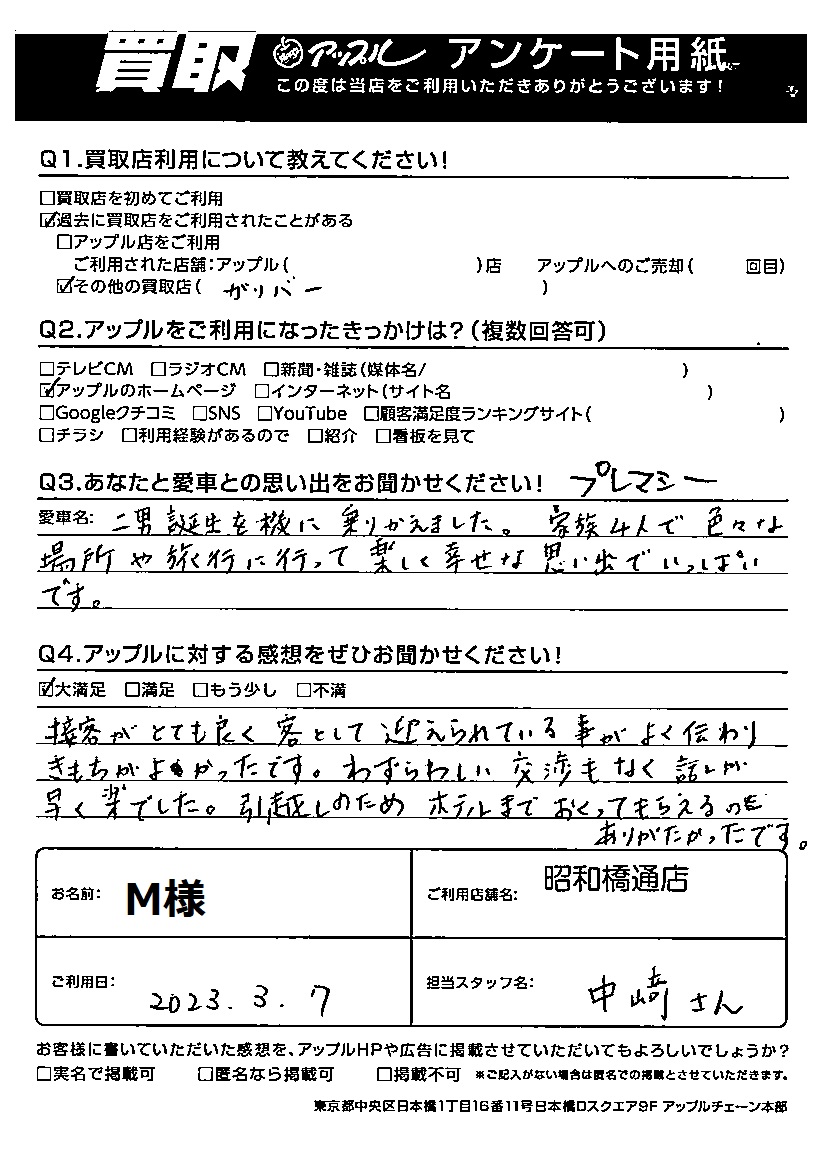 買取 アップル アンケート用紙
この度は当店をご利用いただきありがとうございます!
Q1.買取店利用について教えてください!
□買取店を初めてご利用
☑過去に買取店をご利用されたことがある
□アップル店をご利用
ご利用された店舗:アップル( )店 アップルへのご売却( 回目)
☑その他の買取店( ガリバー )
Q2.アップルをご利用になったきっかけは?(複数回答可)
□テレビCM □ラジオCM □新聞・雑誌(媒体名/ )
☑アップルのホームページ □インターネット(サイト名 )
□Googleクチコミ □SNS □YouTube □顧客満足度ランキングサイト( )
□チラシ □利用経験があるので □紹介 □看板を見て
Q3.あなたと愛車との思い出をお聞かせください! プレマシー
愛車名: 二男誕生を機に乗りかえました。 家族4人で色々な
場所や旅行に行って楽しく幸せな思い出でいっぱい
です。
Q4.アップルに対する感想をぜひお聞かせください!
☑大満足 □満足 □もう少し □不満
接客がとても良く客として迎えられている事がよく伝わり
きもちがよかったです。わずらわしい交渉もなく話しが
早く楽でした。引越しのためホテルまでおくってもらえるのも
ありがたかったです。
お名前: M様 ご利用店舗名: 昭和橋通店
ご利用日: 2023.3.7 担当スタッフ名: 中崎さん
お客様に書いていただいた感想を、アップルHPや広告に掲載させていただいてもよろしいでしょうか?
□実名で掲載可 □匿名なら掲載可 □掲載不可 ※ご記入がない場合は匿名での掲載とさせていただきます。
東京都中央区日本橋1丁目16番11号日本橋Dスクエア9F アップルチェーン本部